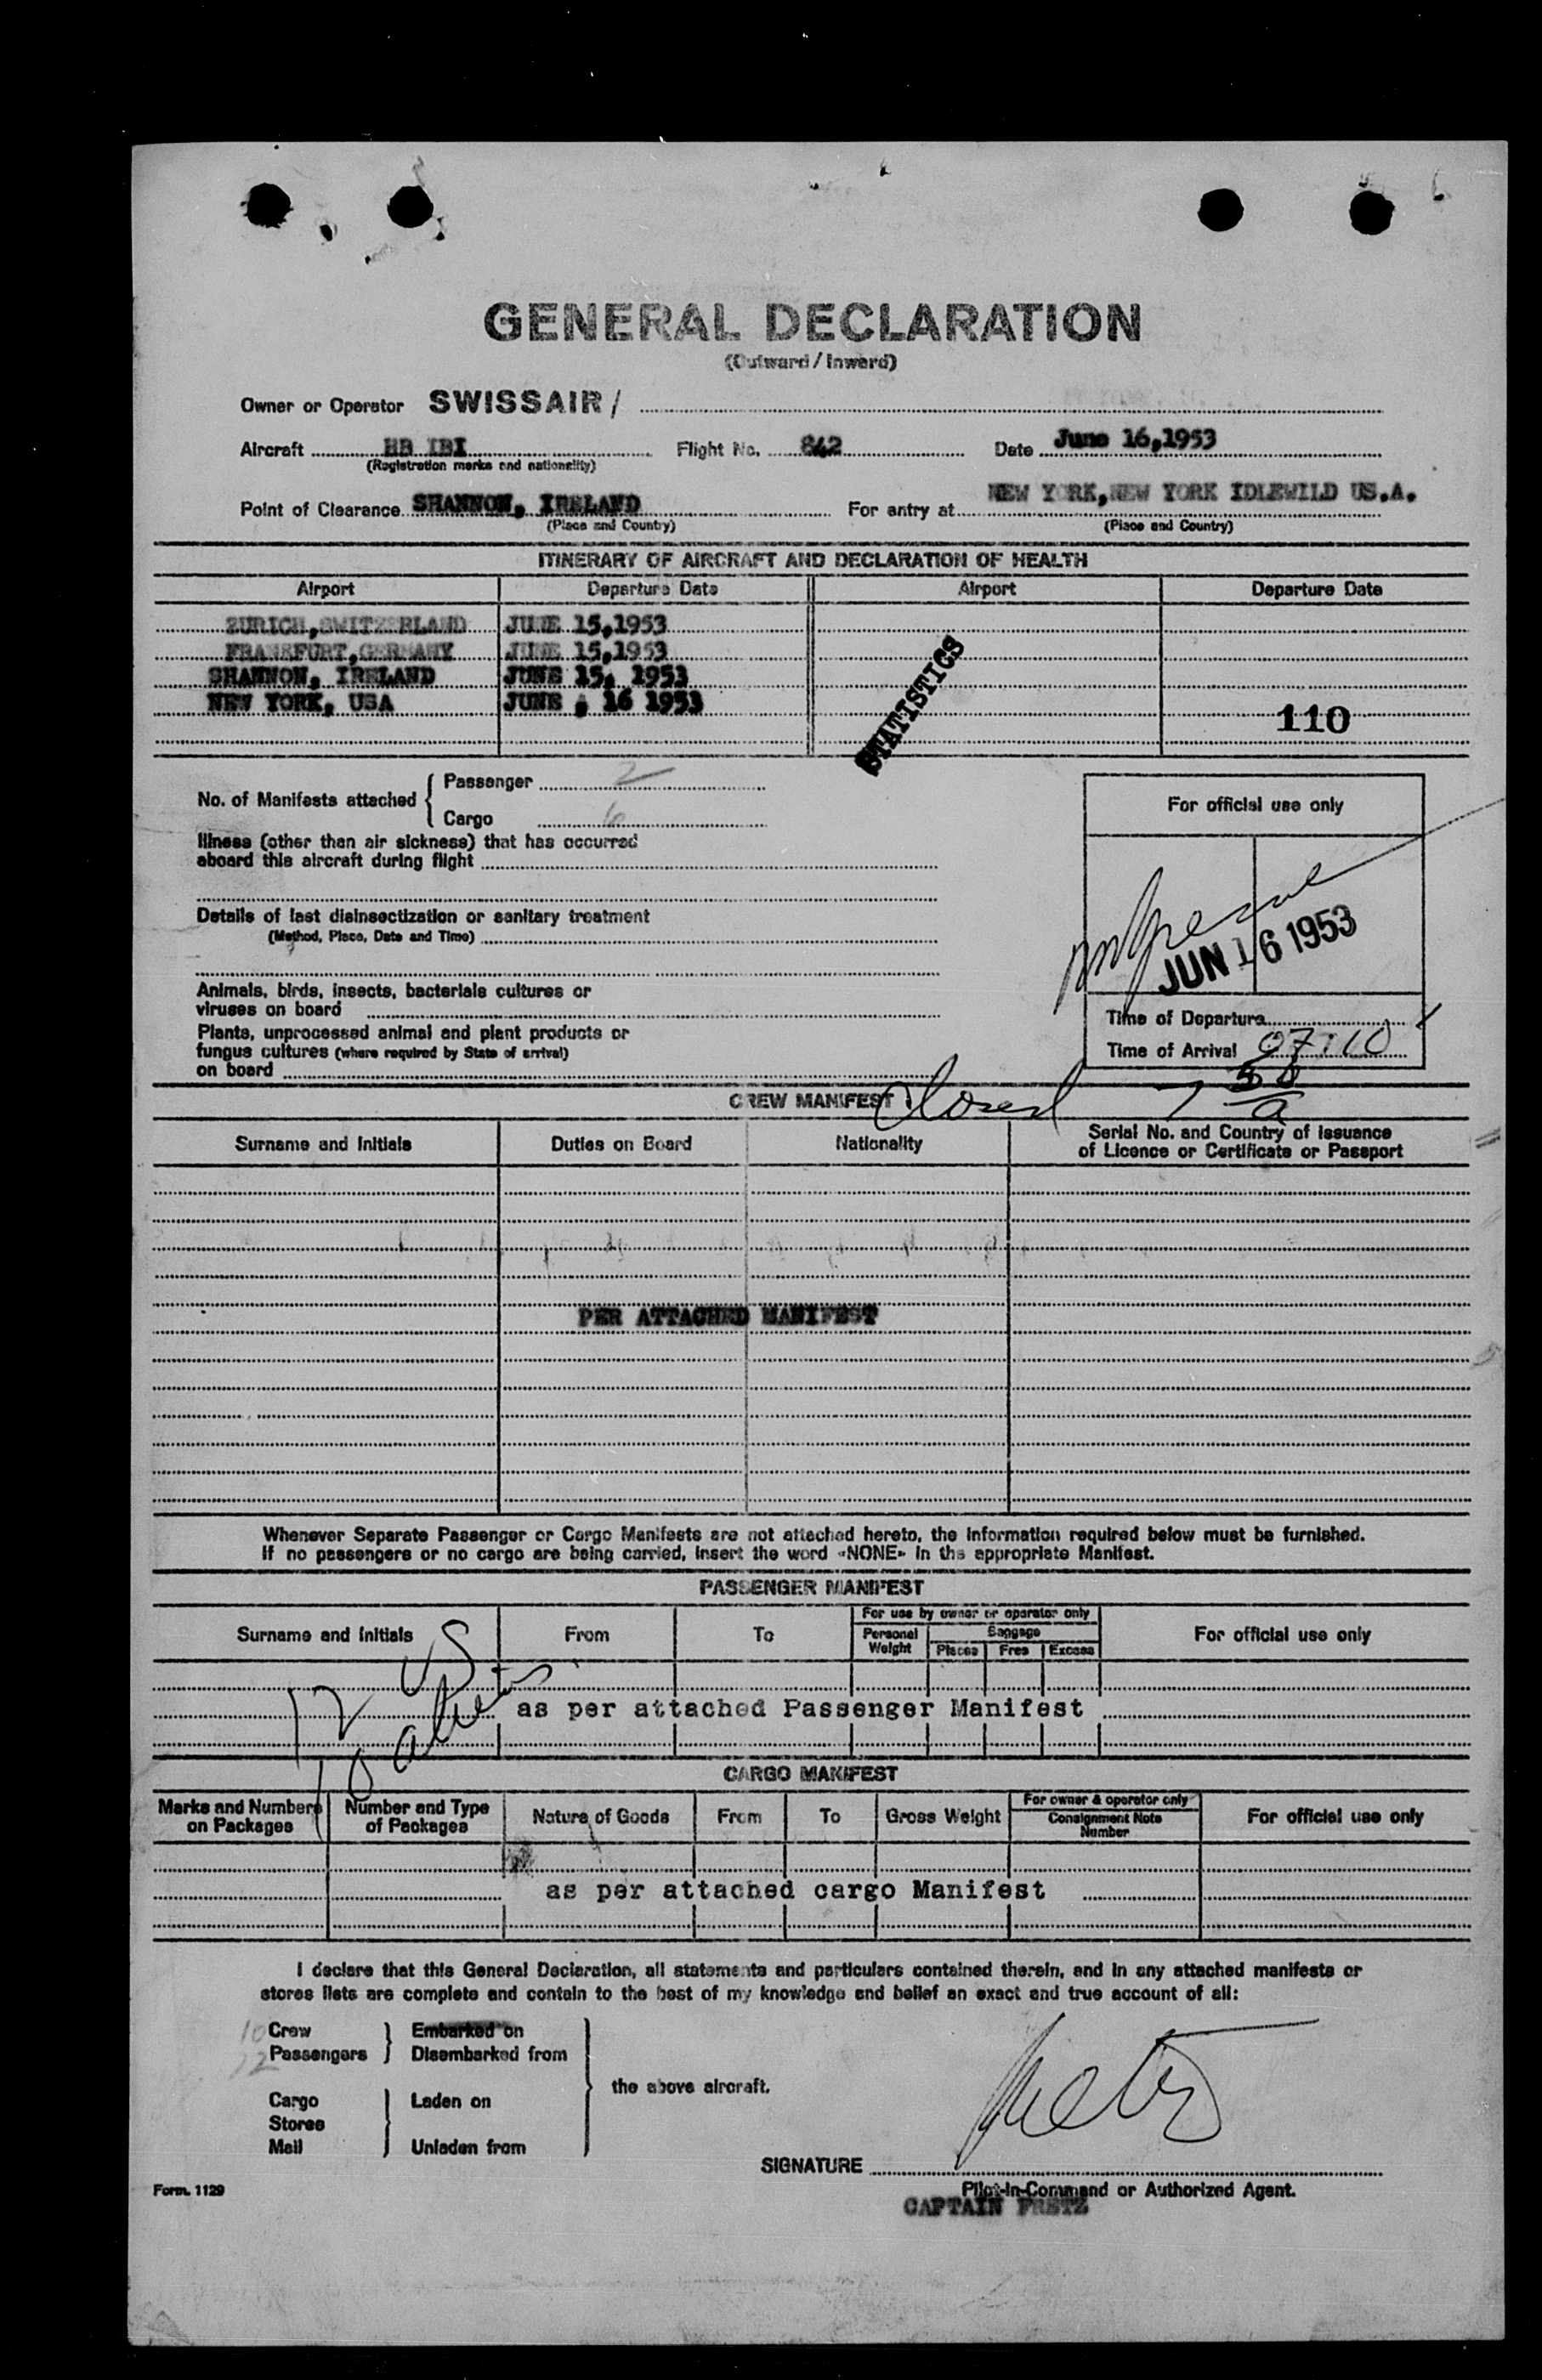 GENERAL DECLARATION
(Outward / Inward)
Owner or Operator SWISSAIR /
Aircraft HB IBI Flight No. 842 Date June 16,1953
(Registration marks and nationality)
Point of Clearance SHANNON, IRELAND For entry at NEW YORK,NEW YORK IDLEWILD US.A.
(Place and Country) (Place and Country)
ITINERARY OF AIRCRAFT AND DECLARATION OF HEALTH
Airport Departure Date Airport Departure Date
ZURICH,SWITZERLAND JUNE 15,1953
FRANKFURT,GERMANY JUNE 15,1953
SHANNON, IRELAND JUNE 15, 1953
NEW YORK, USA JUNE , 16 1953
STATISTICS
110
No. of Manifests attached { Passenger 2
Cargo 6
For official use only
Illness (other than air sickness) that has occurred
aboard this aircraft during flight
Details of last disinsectization or sanitary treatment
(Method, Place, Date and Time)
JUN 16 1953
Animals, birds, insects, bacterials cultures or
viruses on board
Plants, unprocessed animal and plant products or
fungus cultures (where required by State of arrival)
on board
Time of Departure
Time of Arrival 07:10
CREW MANIFEST
Closed 7 50 a
Surname and Initials Duties on Board Nationality Serial No. and Country of Issuance
of Licence or Certificate or Passport
PER ATTACHED MANIFEST
Whenever Separate Passenger or Cargo Manifests are not attached hereto, the information required below must be furnished.
If no passengers or no cargo are being carried, insert the word «NONE» in the appropriate Manifest.
PASSENGER MANIFEST
Surname and Initials From To For use by owner or operator only For official use only
Personal Weight Baggage
Pieces Free Excess
12 US
10 aliens
as per attached Passenger Manifest
CARGO MANIFEST
Marks and Numbers on Packages Number and Type of Packages Nature of Goods From To Gross Weight For owner & operator only Consignment Note Number For official use only
as per attached cargo Manifest
I declare that this General Declaration, all statements and particulars contained therein, and in any attached manifests or
stores lists are complete and contain to the best of my knowledge and belief an exact and true account of all:
10 Crew } Embarked on
12 Passengers Disembarked from
the above aircraft.
Cargo Laden on
Stores
Mail Unladen from
SIGNATURE
Form. 1129
Pilot-in-Command or Authorized Agent.
CAPTAIN FRETZ